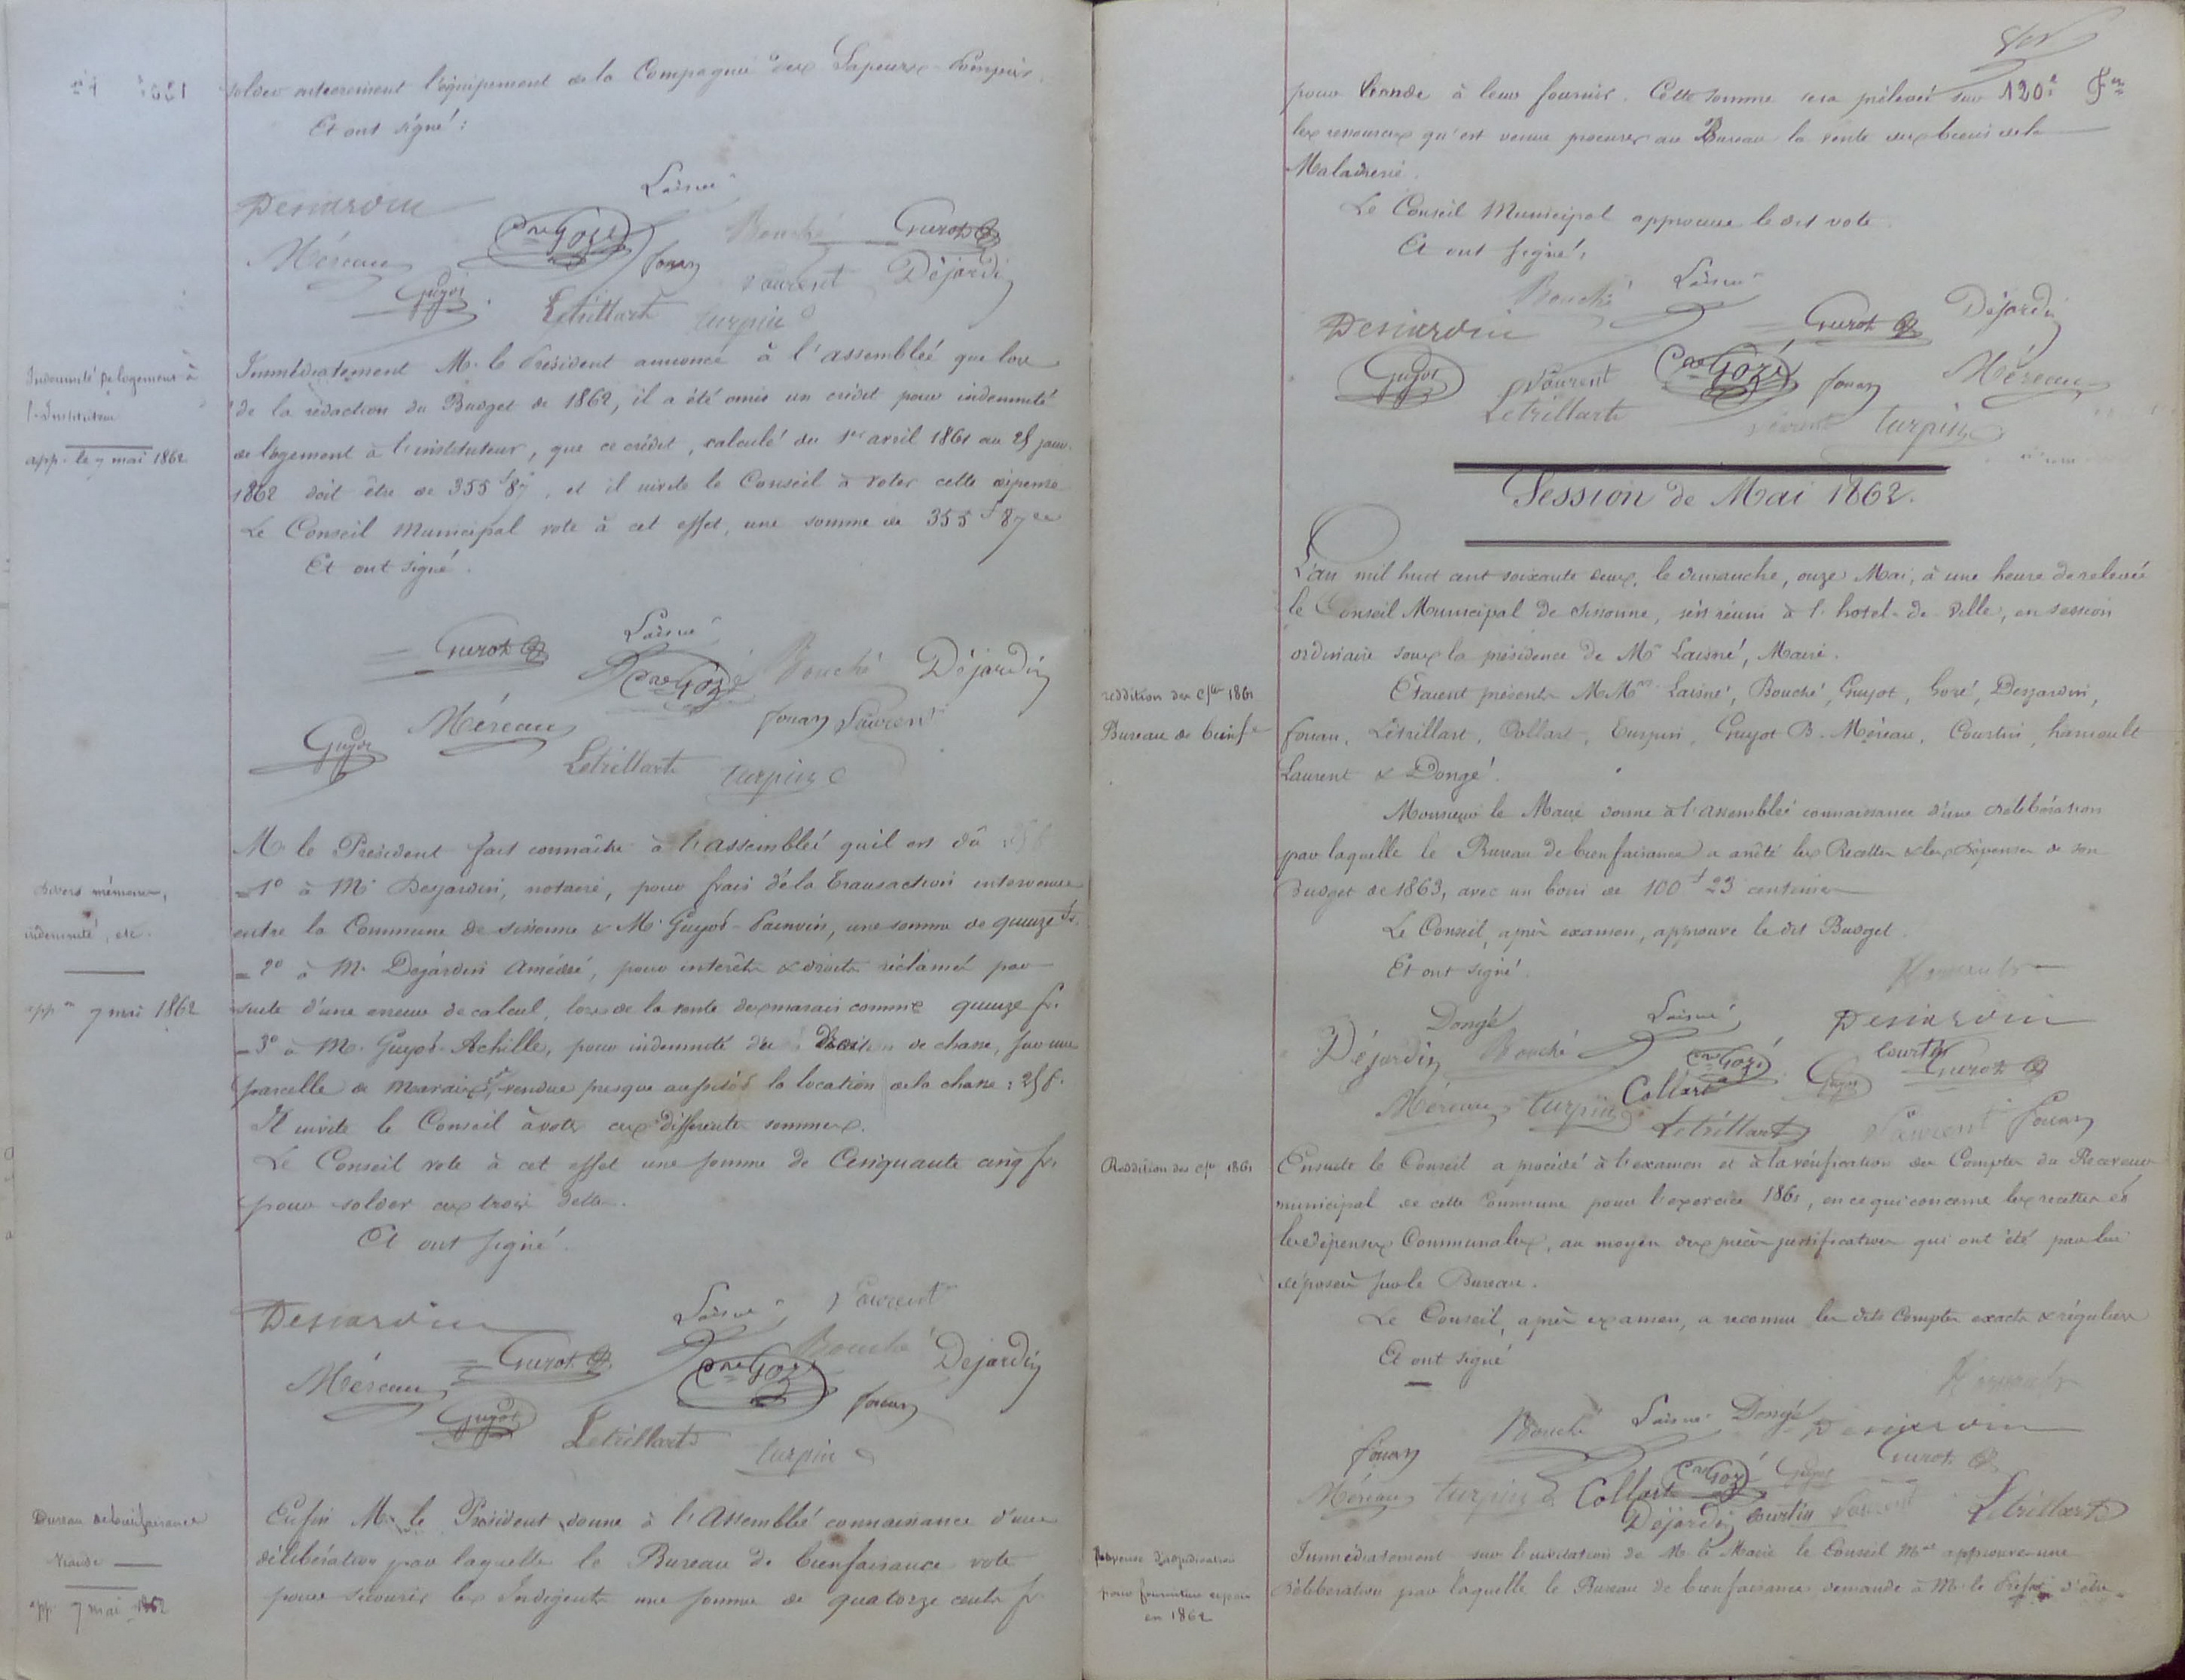 solder entierement l'équipement de la Compagnie des Sapeurs-Pompiers.
Et ont signé :
Laisné
Desjardin
Bouché
Guyot B
Méreau
Gozé
fouan
Laurent
Déjardin
Guyot
Letrillart
turpin
Indemnité de logement à
l'Instituteur
app. le 7 mai 1862
Immédiatement M. le Président annonce à l'assembleé que lors
de la rédaction du Budget de 1862, il a été omis un crédit pour indemnité
de logement à l'instituteur, que ce crédit, calculé du 1er avril 1861 au 25 janv.
1862 doit être de 355f 87, et il invite le Conseil à voter cette dépense
Le Conseil Municipal vote à cet effet, une somme de 355f 87ce
Et ont signé.
Guyot B
Laisné
Gozé
Bouché
Déjardin
Méreau
fouan
Laurent
Guyot
Letrillart
turpin
Divers mémoires,
indemnité, etc.
app on 7 mai 1862
M. le Président fait connaître à l'assembleé qu'il est dû
= 1° à Mr Desjardin, notaire, pour frais de la transaction intervenue
entre la Commune de sissonne & M. Guyot-Painvin, une somme de quinze fr.
= 2° à M. Dejardin Amédée, pour intérêts & droits réclamés par
suite d'une erreur de calcul, lors de la vente des marais comme quinze fr.
= 3° à M. Guyot-Achille, pour indemnité du droit de chasse, sur une
parcelle de Marais, vendue presque aussitôt la location de la chasse : 25 f.
Il invite le Conseil à voter ces différentes sommes.
Le Conseil vote à cet effet une somme de Cinquante cinq fr.
pour solder ces trois dettes.
Et ont signé.
Desjardin
Laisné
Laurent
Guyot B
Bouché
Déjardin
Méreau
Gozé
fouan
Guyot
Letrillart
turpin
Bureau de bienfaisance
Viande
app. 7 mai 1862
Enfin M. le Président donne à l'Assembleé connaissance d'une
délibération par laquelle le Bureau de bienfaisance vote
pour secourir les Indigents une somme de quatorze cents fr.
pour viande à leur fournir. Cette somme sera prélevée sur 120e Fet
les ressources qu'est venue procurer au Bureau la vente des biens de la
Maladrerie.
Le Conseil Municipal approuve le dit vote.
Et ont signé,
Bouché
Laisné
Desjardin
Guyot B
Déjardin
Guyot
Laurent
Gozé
fouan
Méreau
Letrillart
turpin
Session de Mai 1862.
L'an mil huit cent soixante deux, le dimanche, onze Mai, à une heure de relevée
le Conseil Municipal de Sissonne, s'est réuni à l'hotel-de-ville, en session
ordinaire sous la présidence de Mr Laisné, Maire.
reddition des cptes 1861
Bureau de bienfce
Etaient présents M.Mrs Laisné, Bouché, Guyot, Gozé, Desjardin,
fouan, Létrillart, Collart, Turpin, Guyot B. Méreau, Courtin, hanoult
Laurent & Dongé.
Monsieur le Maire donne à l'assembleé connaissance d'une délibération
par laquelle le Bureau de bienfaisance a arrêté les Recettes & les Dépenses de son
Budget de 1863, avec un boni de 100f 23 centimes
Le Conseil, après examen, approuve le dit Budget.
Et ont signé.
Dongé
Laisné
Desjardin
Déjardin
Bouché
Gozé
Courtin
Guyot B
Méreau
turpin
Collart
Guyot
Letrillart
Laurent
fouan
Reddition des cptes 1861
Ensuite le Conseil a procédé à l'examen et à la vérification des Comptes du Receveur
municipal de cette Commune pour l'exercice 1861, en ce qui concerne les recettes et
les dépenses Communales, au moyen des pièces justificatives qui ont été par lui
déposées sur le Bureau.
Le Conseil, après examen, a reconnu les dits Comptes exacts & réguliers
Et ont signé
fouan
Bouché
Laisné
Dongé
Desjardin
Méreau
turpin
Collart
Gozé
Guyot
Guyot B
Déjardin
Courtin
Laurent
Letrillart
Dispense d'adjudication
pour fourniture de pain
en 1862
Immédiatement sur l'invitation de M. le Maire le Conseil Mal approuve une
délibération par laquelle le Bureau de bienfaisance demande à Mr le Préfet d'être